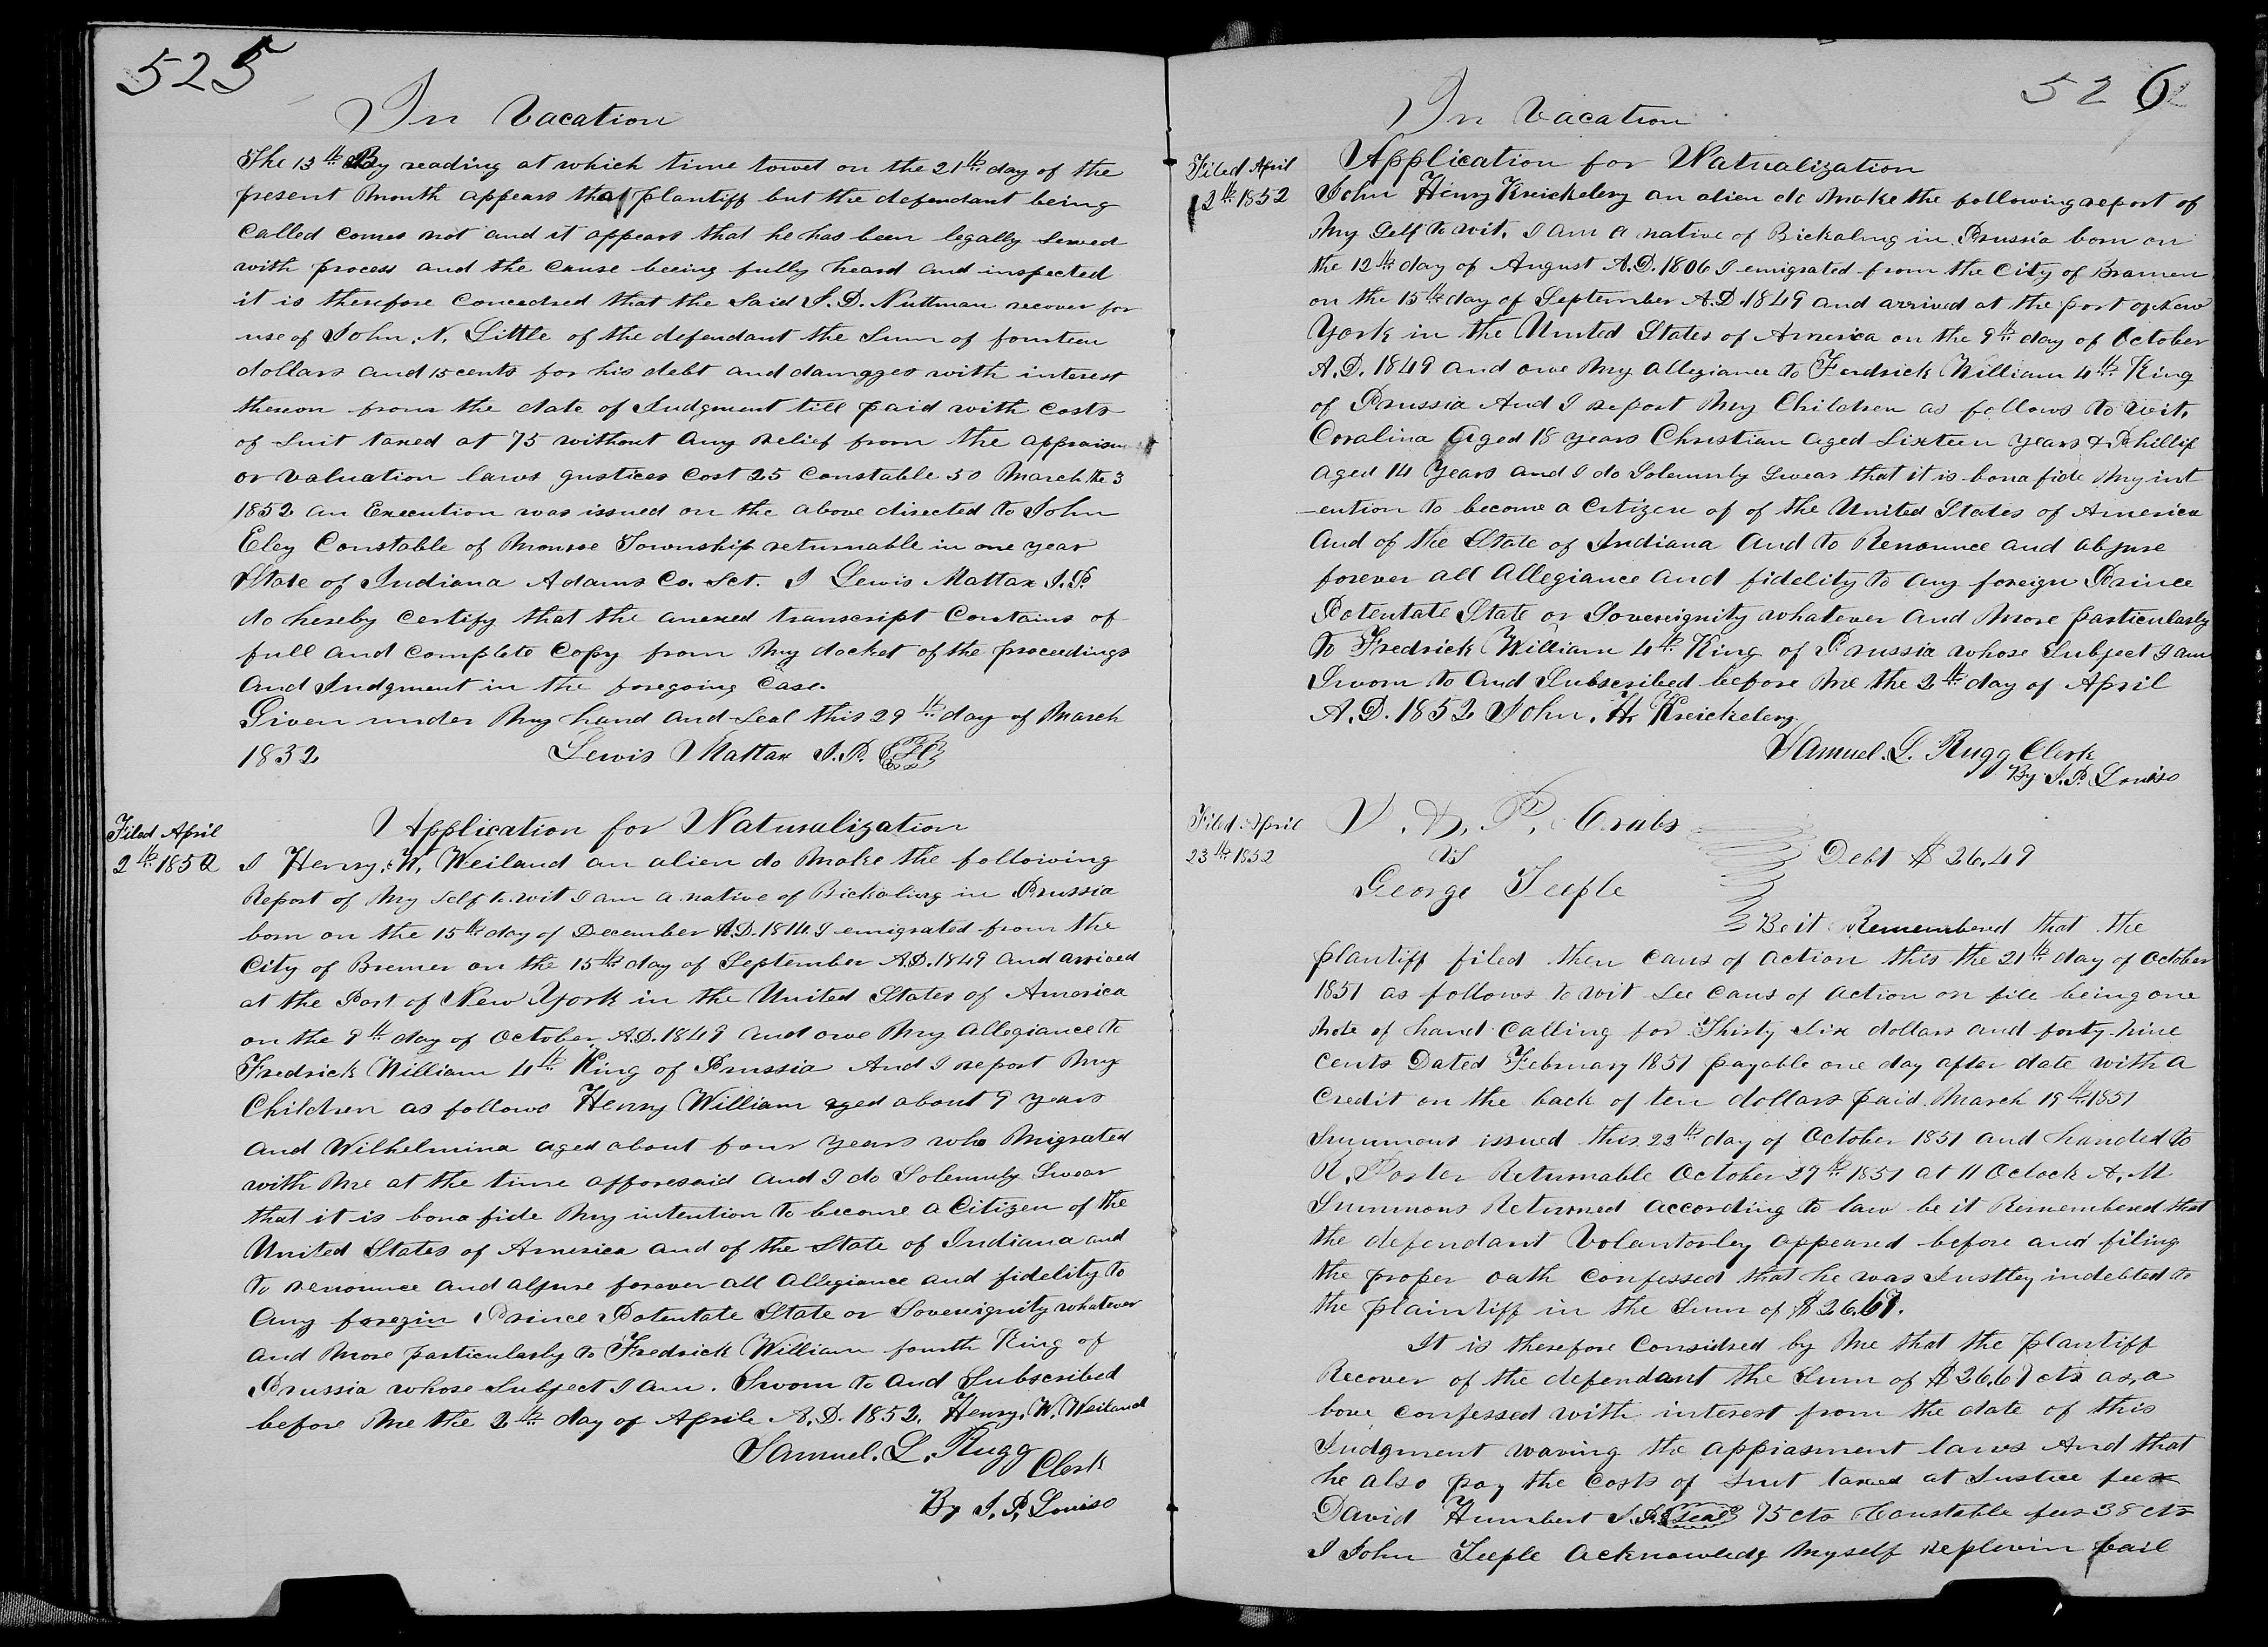 525
In Vacation
The 13th By reading at which time towet on the 21th day of the
present Month appears that plantiff but the defendant being
Called Comes not and it appears that he has been legally Served
with process and the Cause beeing fully heard and inspected
it is therefore Concedred that the Said J. D. Nuttman recover for
use of John. N. Little of the defendant the Sum of fourteen
dollars and 15 cents for his debt and damages with interest
thereon from the date of Judgment till paid with Costs
of Suit taxed at 75 without any relief from the appraisment
or valuation laws Justices Cost 25 Constable 50 March the 3
1852 an Execution was issued on the above directed to John
Eley Constable of Monroe Township returnable in one year
State of Indiana Adams Co. Sct. I Lewis Mattax J.P.
do hereby Certify that the anexed transcript Contains of
full and Complete Copy from My docket of the proceedings
and Judgment in the foregoing Case.
Given under My hand and Seal this 29th day of March
1832 Lewis Mattax J.P.
Filed April
2th 1852
Application for Naturalization
I Henry. W. Weiland an alien do Make the following
Report of My Self to wit I am a native of Bickoling in Prussia
born on the 15th day of December A.D. 1814. I emigrated from the
City of Bremer on the 15th day of September A.D. 1849 and arrived
at the Port of New York in the United States of America
on the 9th day of October A.D. 1849 and owe My allegiance to
Fredrick William 4th King of Prussia And I report My
Children as follows Henry William aged about 9 years
and Wilhelmina aged about four years who Migrated
with Me at the time afforesaid and I do Solemnly Swear
that it is bona fide My intention to become a Citizen of the
United States of America and of the State of Indiana and
to renounce and abjure forever all allegiance and fidelity to
any foregin Prince Potentate State or Sovereignity whatever
and More particularly to Fredrick William fourth King of
Prussia whose Subject I am. Sworn to and Subscribed
before Me the 2th day of Aprile A.D. 1852. Henry. W. Weiland
Samuel. L. Rugg
Clerk
By J. P. Louiso
526
In Vacation
Filed April
2th 1852
Application for Natualization
John Henry Kreickelerg an alien do Make the following report of
My Self to wit. I am a native of Bickaling in Prussia born on
the 12th day of August A.D. 1806 I emigrated from the City of Bramen
on the 15th day of September A.D. 1849 and arrived at the port of New
York in the United States of America on the 9th day of October
A.D. 1849 and owe My allegiance to Ferdrick William 4th King
of Prussia And I report My Children as follows to wit.
Coralina aged 18 years Christian aged Sixteen years & Phillip
aged 14 years and I do Solemnly Swear that it is bona fide My int
-ention to become a Citizen of of the United States of America
and of the State of Indiana and to Renounce and abjure
forever all allegiance and fidelity to any foreign Prince
Potentate State or Sovereignity whatever and More particularly
to Fredrick William 4th King of Prussia whose Subject I am
Sworn to and Subscribed before Me the 2th day of April
A.D. 1852 John. H. Kreickelerg.
Samuel. L. Rugg Clerk
By J. P. Louiso
Filed April
23th 1852
V. & P. Crabs
vs
George Teeple
Debt $ 26.49
Be it Remembered that the
plantiff filed then Caus of action this the 21th day of October
1851 as follows to wit See Caus of action on file being one
Note of hand Calling for Thirty Six dollars and forty nine
Cents Dated February 1851 payable one day after date with a
Credit on the back of ten dollars paid March 19th 1851
Summons issued this 22th day of October 1851 and handed to
R. Porter Returnable October 29th 1851 at 11 Oclock A.M
Summons Returned according to law be it Remembered that
the defendant Volantorley appeared before and filing
the proper oath Confessed that he was Justley indebted to
the plaintiff in the Sum of $ 26.67.
It is therefore Considred by Me that the plantiff
Recover of the defendant the Sum of $ 26.67 cts as a
bove confessed with interest from the date of this
Judgment waving the appiasment laws And that
he also pay the Costs of Suit taxed at Justice fees
David Humbert J.P. Seal 75 cts Constable fees 38 cts
I John Teeple acknowledg Myself Replevin bail